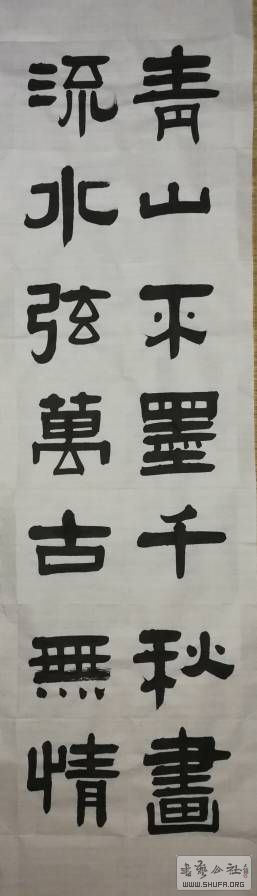 青山不墨千秋畫
流水弦萬古無情
书艺公社
WWW.SHUFA.ORG